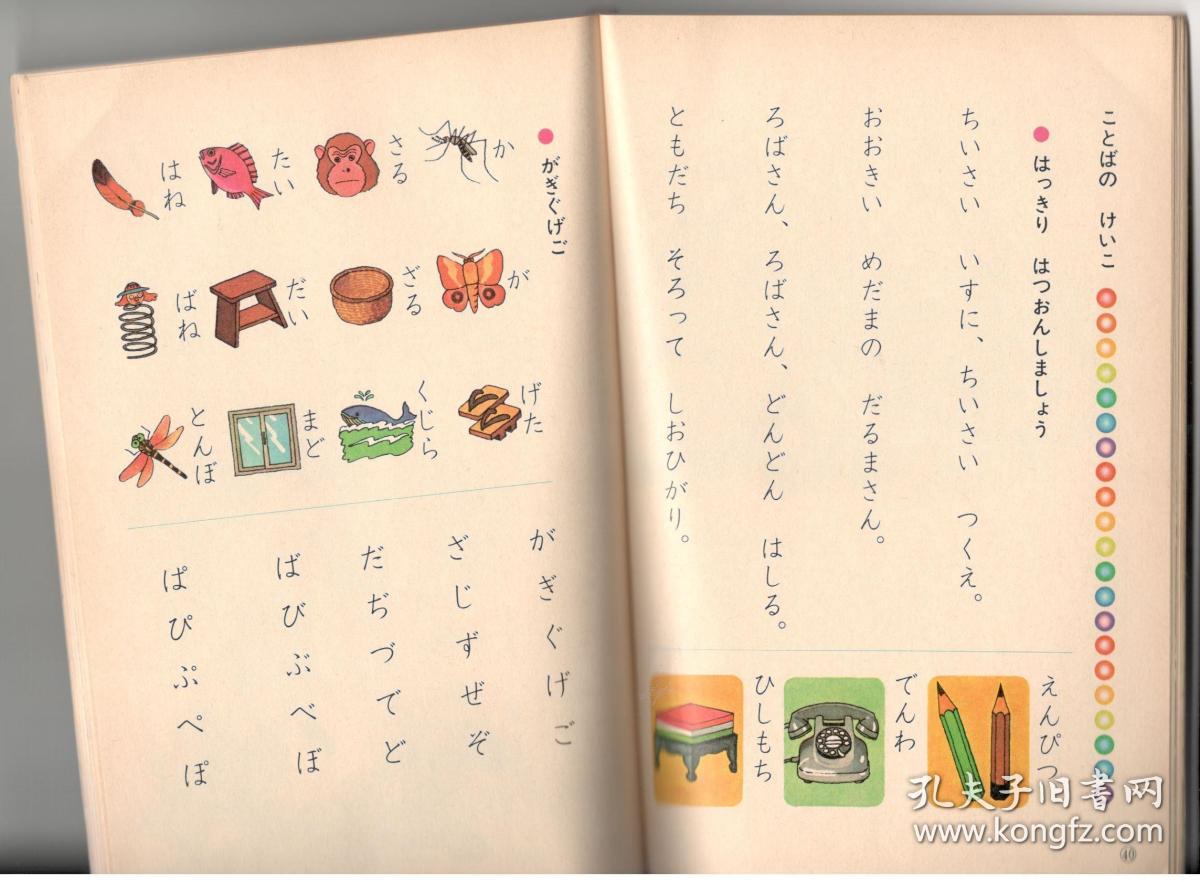 ことばの けいこ
はっきり はつおんしましょう
ちいさい いすに、ちいさい つくえ。
おおきい めだまの だるまさん。
ろばさん、ろばさん、どんどん はしる。
ともだち そろって しおひがり。
えんぴつ
でんわ
ひしもち
40
がぎぐげご
か
さる
たい
はね
が
ざる
だい
ばね
げた
くじら
まど
とんぼ
がぎぐげご
ざじずぜぞ
だぢづでど
ばびぶべぼ
ぱぴぷぺぽ
孔夫子旧书网
www.kongfz.com